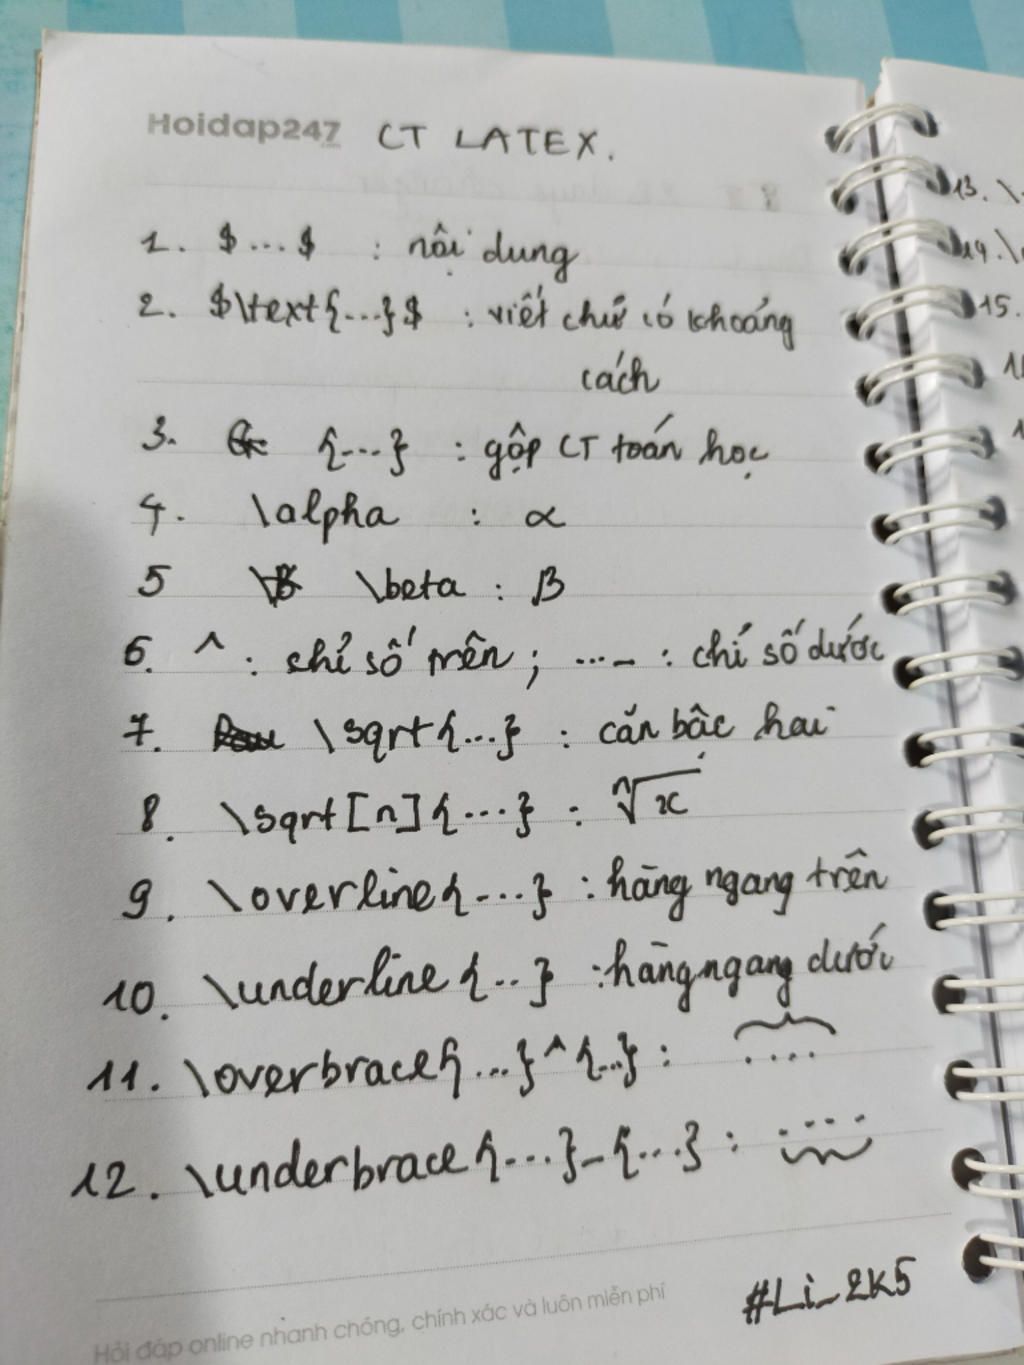 Hoidap247 CT LATEX.
1. $...$ : nội dung
2. $\text{...}$ : viết chữ có khoảng
cách
3. {...} : gộp CT toán học
4. \alpha : α
5 \beta : β
6. ^ : chỉ số trên ; ..._ : chỉ số dưới
7. \sqrt{...} : căn bậc hai
8. \sqrt[n]{...} : ⁿ√x
9. \overline{...} : hàng ngang trên
10. \underline{..} : hàng ngang dưới
11. \overbrace{...}^{...} : ....
12. \underbrace{...}_{...} : ....
#Li_2K5
Hỏi đáp online nhanh chóng, chính xác và luôn miễn phí
13. \
14. \
15.